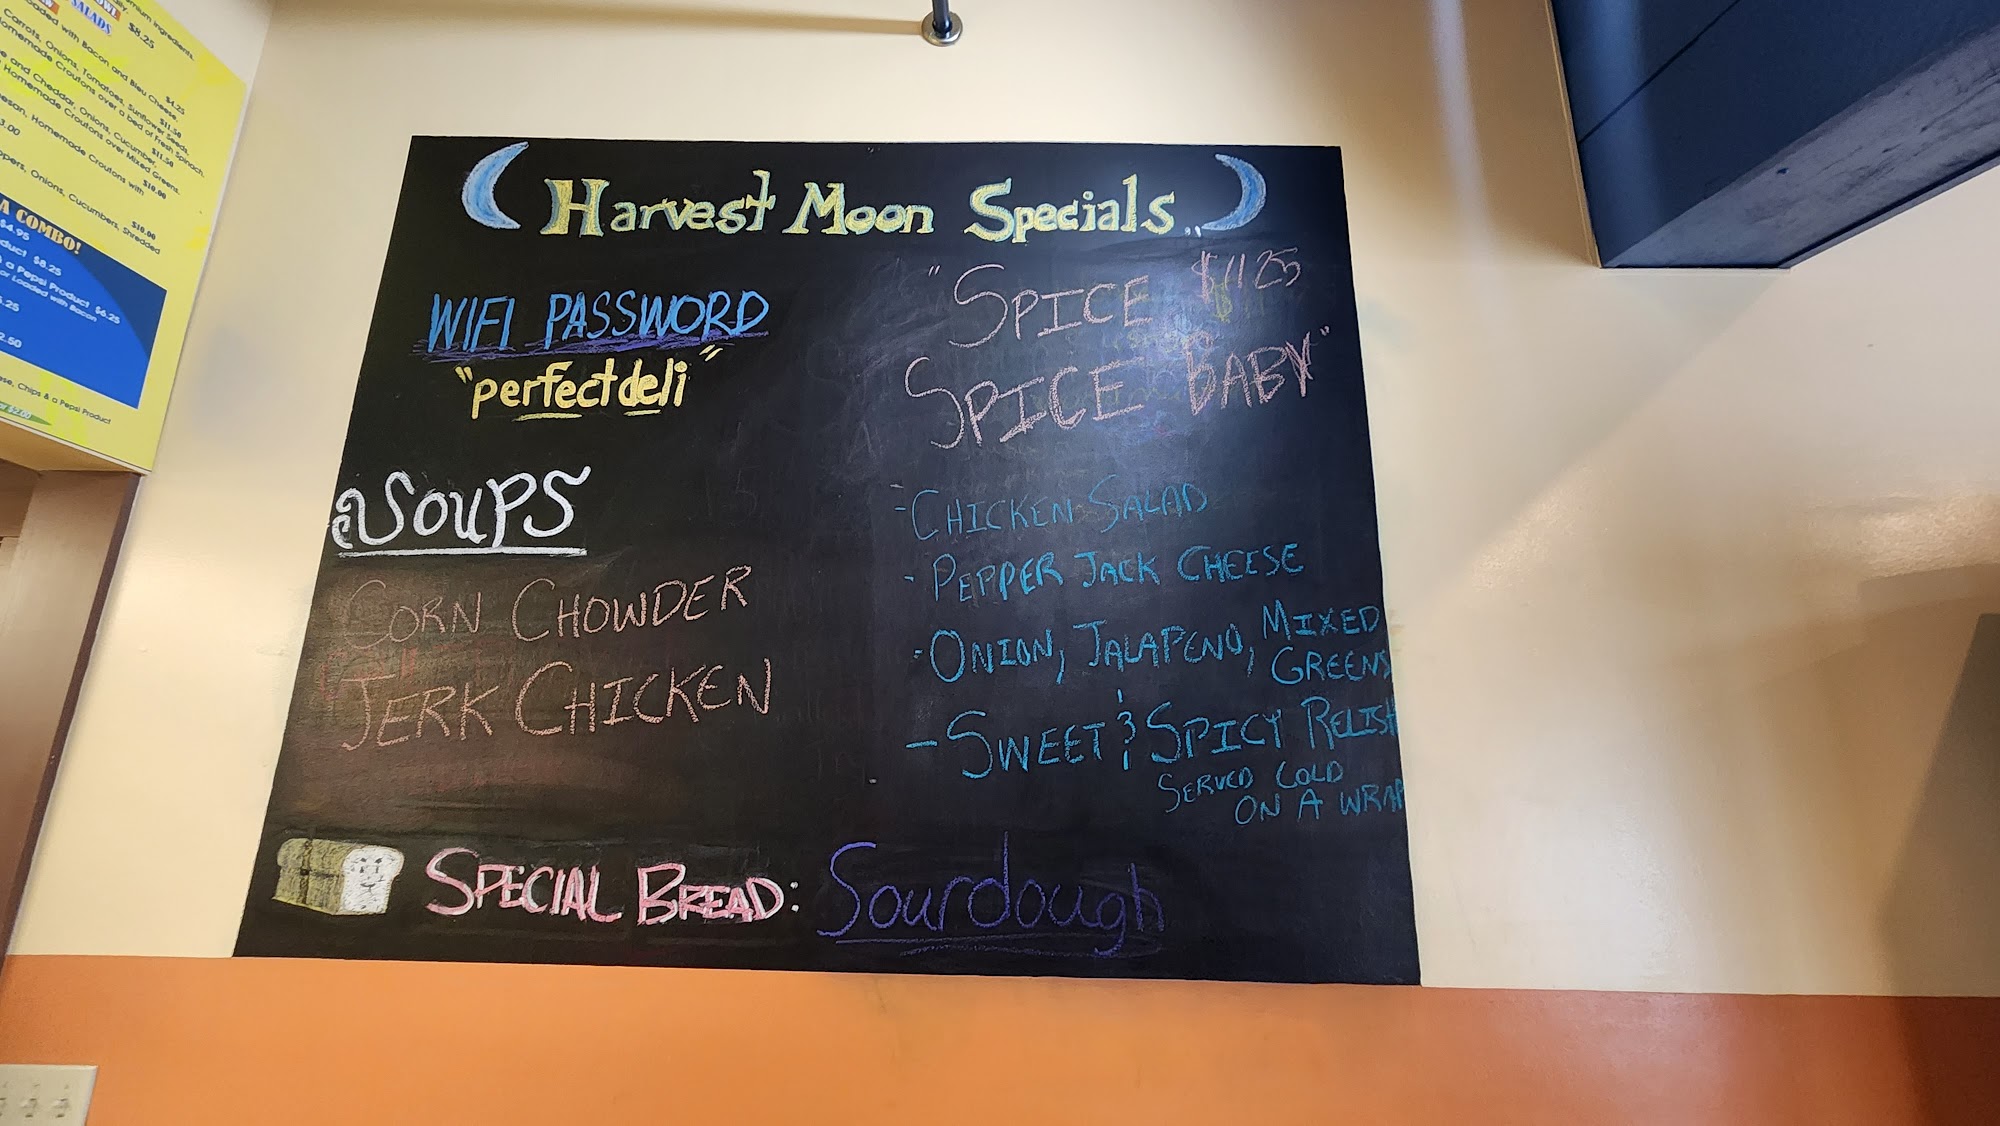 SALADS
$8.25
Loaded with Bacon and Bleu Cheese,
$4.25
Carrots, Onions, Tomatoes, Sunflower Seeds,
Homemade Croutons over a bed of Fresh Spinach,
$11.50
and Cheddar, Onions, Cucumber,
Homemade Croutons over Mixed Greens,
$11.50
Homemade Croutons with
$10.00
Onions, Cucumbers, Shredded
$10.00
A COMBO!
$4.95
$8.25
a Pepsi Product $6.25
or Loaded with Bacon
Chips & a Pepsi Product
or $2.00
Harvest Moon Specials...
WIFI PASSWORD
"perfectdeli"
Soups
CORN CHOWDER
JERK CHICKEN
"SPICE $11.25
SPICE BABY"
- CHICKEN SALAD
- PEPPER JACK CHEESE
- ONION, JALAPENO, MIXED GREENS
- SWEET & SPICY RELISH
SERVED COLD
ON A WRAP
SPECIAL BREAD: Sourdough